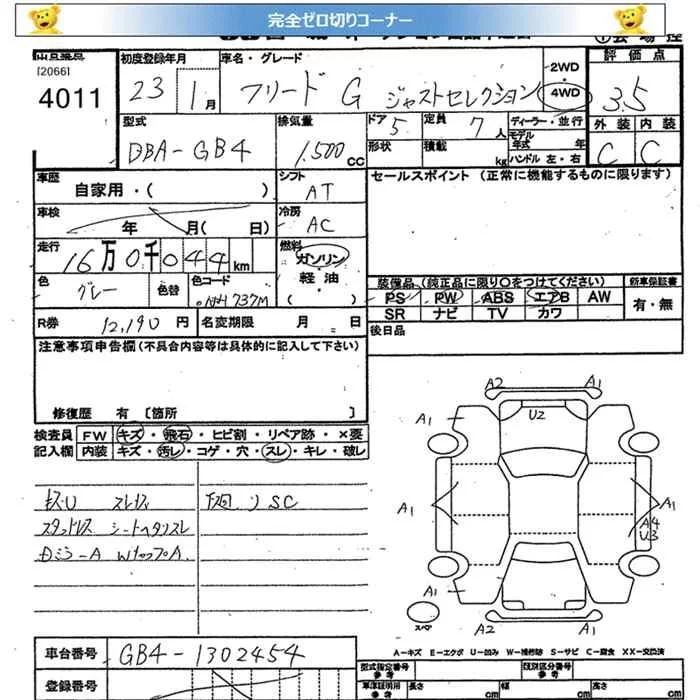 完全ゼロ切りコーナー
[2066]
4011
初度登録年月
23 1月
車名・グレード
フリード G ジャストセレクション
2WD
・
4WD
評価点
3.5
外装 内装
C C
型式
DBA-GB4
排気量
1.500cc
ドア 5
形状
定員 7人
積載 kg
ディーラー・並行
モデル年式 年
ハンドル 左・右
車歴
自家用・( )
シフト
AT
セールスポイント (正常に機能するものに限ります)
車検
年 月( 日)
冷房
AC
走行
16万0千044km
燃料
ガソリン
軽油・
色
グレー
色替
色コード
NH737M
装備品 (純正品に限り○をつけてください)
PS PW ABS エアB AW
SR ナビ TV カワ
新車保証書
有・無
R券 12,190円 名変期限 月 日
後日品
注意事項申告欄(不具合内容等は具体的に記入して下さい)
修復歴 有 〔箇所 〕
検査員記入欄
FW キズ・飛石・ヒビ割・リペア跡・×要
内装 キズ・汚レ・コゲ・穴・スレ・キレ・破レ
キズU スレキズ 下廻りSC
スタッドレス シートヘタリスレ
Dミラ-A WナップA
A2 A1
A1 U2 A1
A1 A1
A4
U3
A1 A1
スペア
A2 A1
A-キズ E-エクボ U-凹み W-補修跡 S-サビ C-腐食 XX-交換済
車台番号 GB4-1302454
登録番号
型式指定番号 参考
類別区分番号 参考
車庫証明用 参考 長さ cm 幅 cm 高さ cm